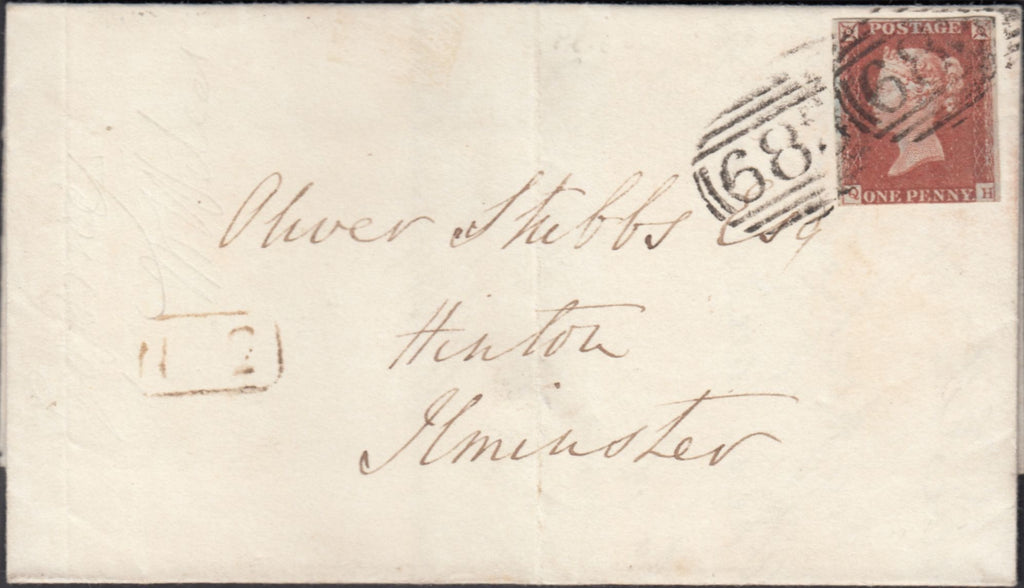 POSTAGE
ONE PENNY
H
683
Oliver Stubbs Esq
Hinton
Ilminster
2